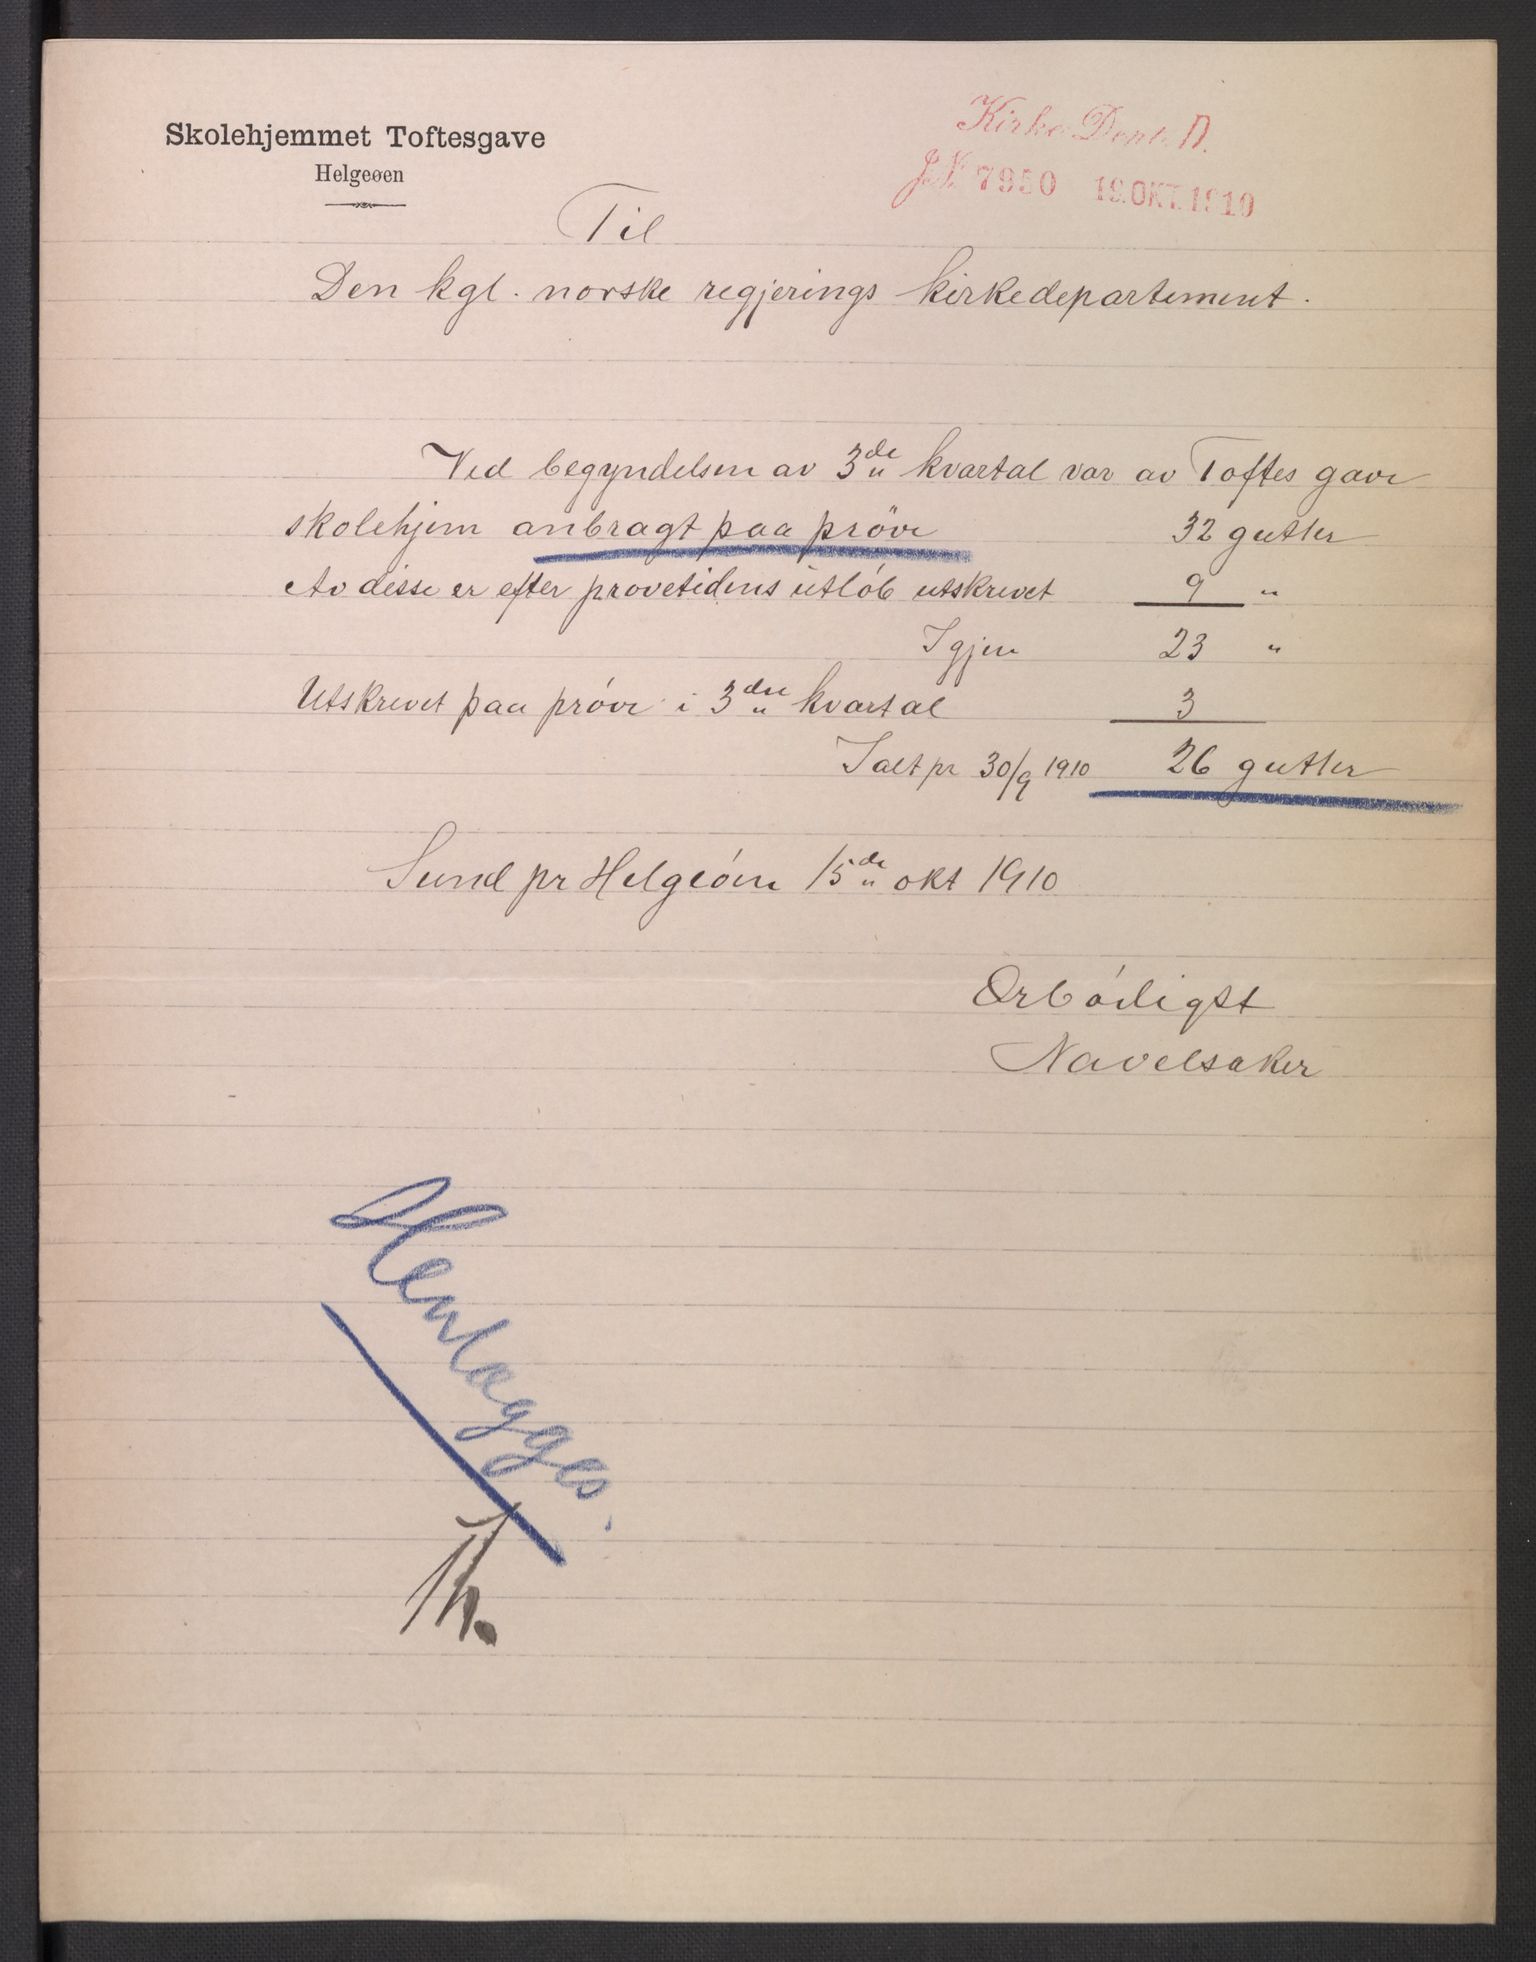 Skolehjemmet Toftesgave
Helgeøen
Kirke Dept. D.
J.N. 7950 19.OKT.1910
Til
Den kgl. norske regjerings kirkedepartement.
Ved begyndelsen av 3de kvartal var av Toftes gave
skolehjem anbragt paa prøve 32 gutter
Av disse er efter prøvetidens utløb utskrevet 9 "
Igjen 23 "
Utskrevet paa prøve i 3die kvartal 3
Ialt pr 30/9 1910 26 gutter
Sund pr Helgeøen 15de okt 1910
Ørbødigst
Navelsaker
Henlægges.
Th.